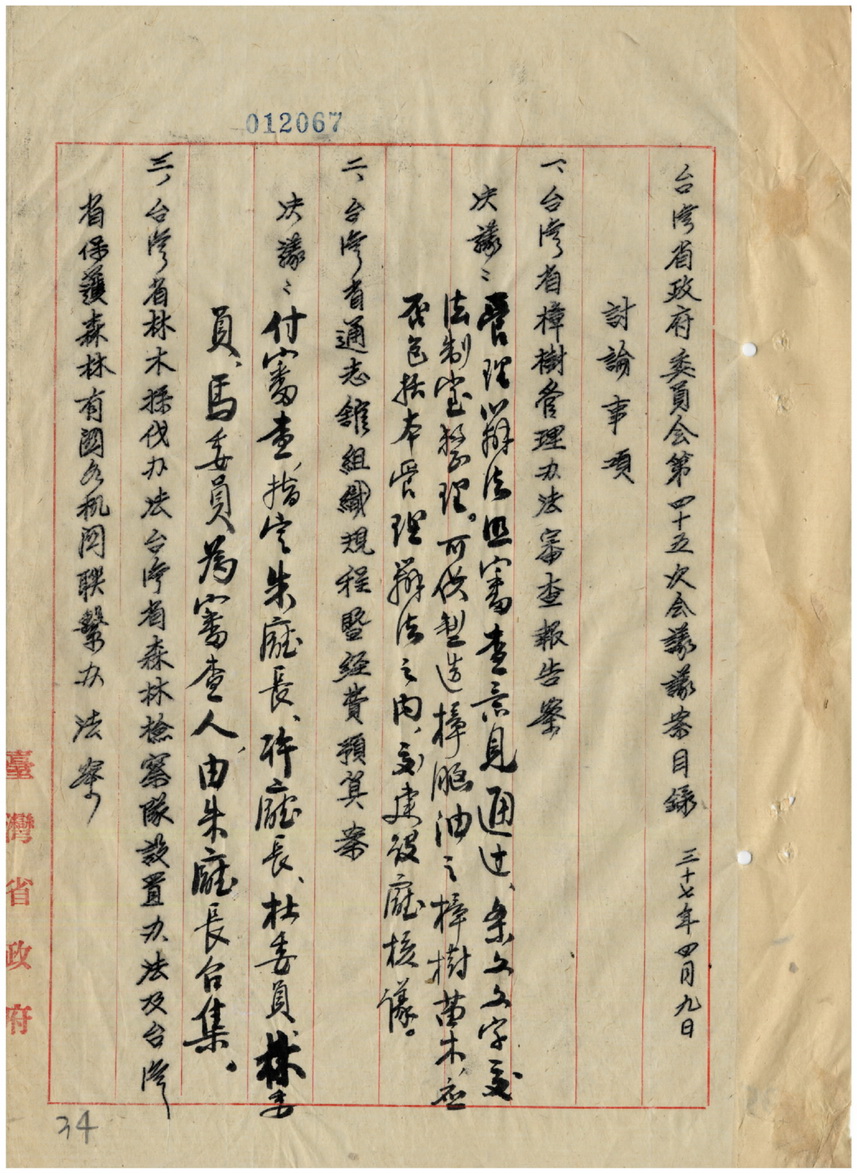 012067
台灣省政府委員会第四十五次会議議案目錄 三十七年四月九日
討論事項
一、台灣省樟樹管理办法審查報告案
決議：管理辦法照審查意見通过、条文文字交
法制室整理。可供製造樟腦油之樟樹苗木、应
否包括本管理辦法之内，交建設廳核議。
二、台灣省通志館組織規程暨経費預算案
決議：付審查，指定朱廳長、許廳長、杜委員、林委
員、馬委員為審查人，由朱廳長召集。
三、台灣省林木採伐办法台灣省森林檢察隊設置办法及台灣
省保護森林有関各机関聯繫办法案
臺灣省政府
34